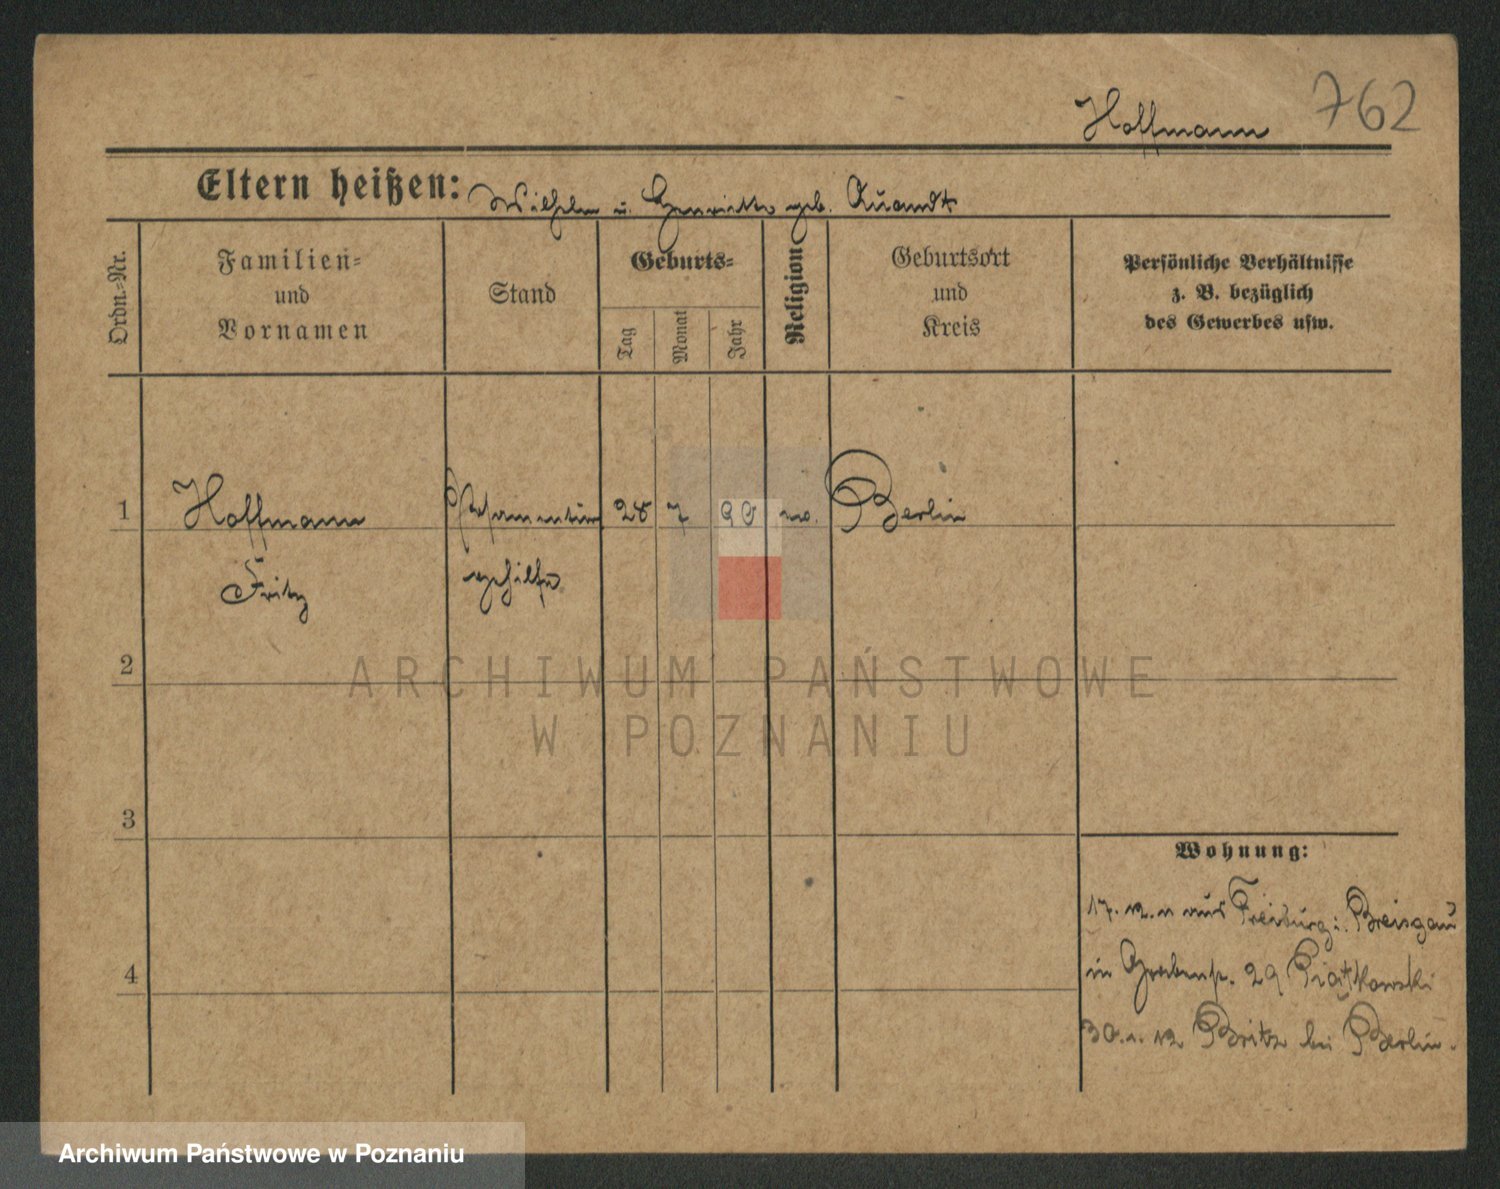 762
Hoffmann
Eltern heißen: Wilhelm u. Henriette geb. Quandt
Ordn.-Nr.
Familien-
und
Vornamen
Stand
Geburts-
Tag
Monat
Jahr
Religion
Geburtsort
und
Kreis
Persönliche Verhältnisse
z. B. bezüglich
des Gewerbes usw.
1 Hoffmann 28 7 90 Berlin
Fritz gehilfe
2
3
4
Wohnung:
17.12.11 aus Freiburg i. Breisgau
in Grabenstr. 29 Piątkowski
30.1.12 Britz bei Berlin.
ARCHIWUM PAŃSTWOWE
W POZNANIU
Archiwum Państwowe w Poznaniu